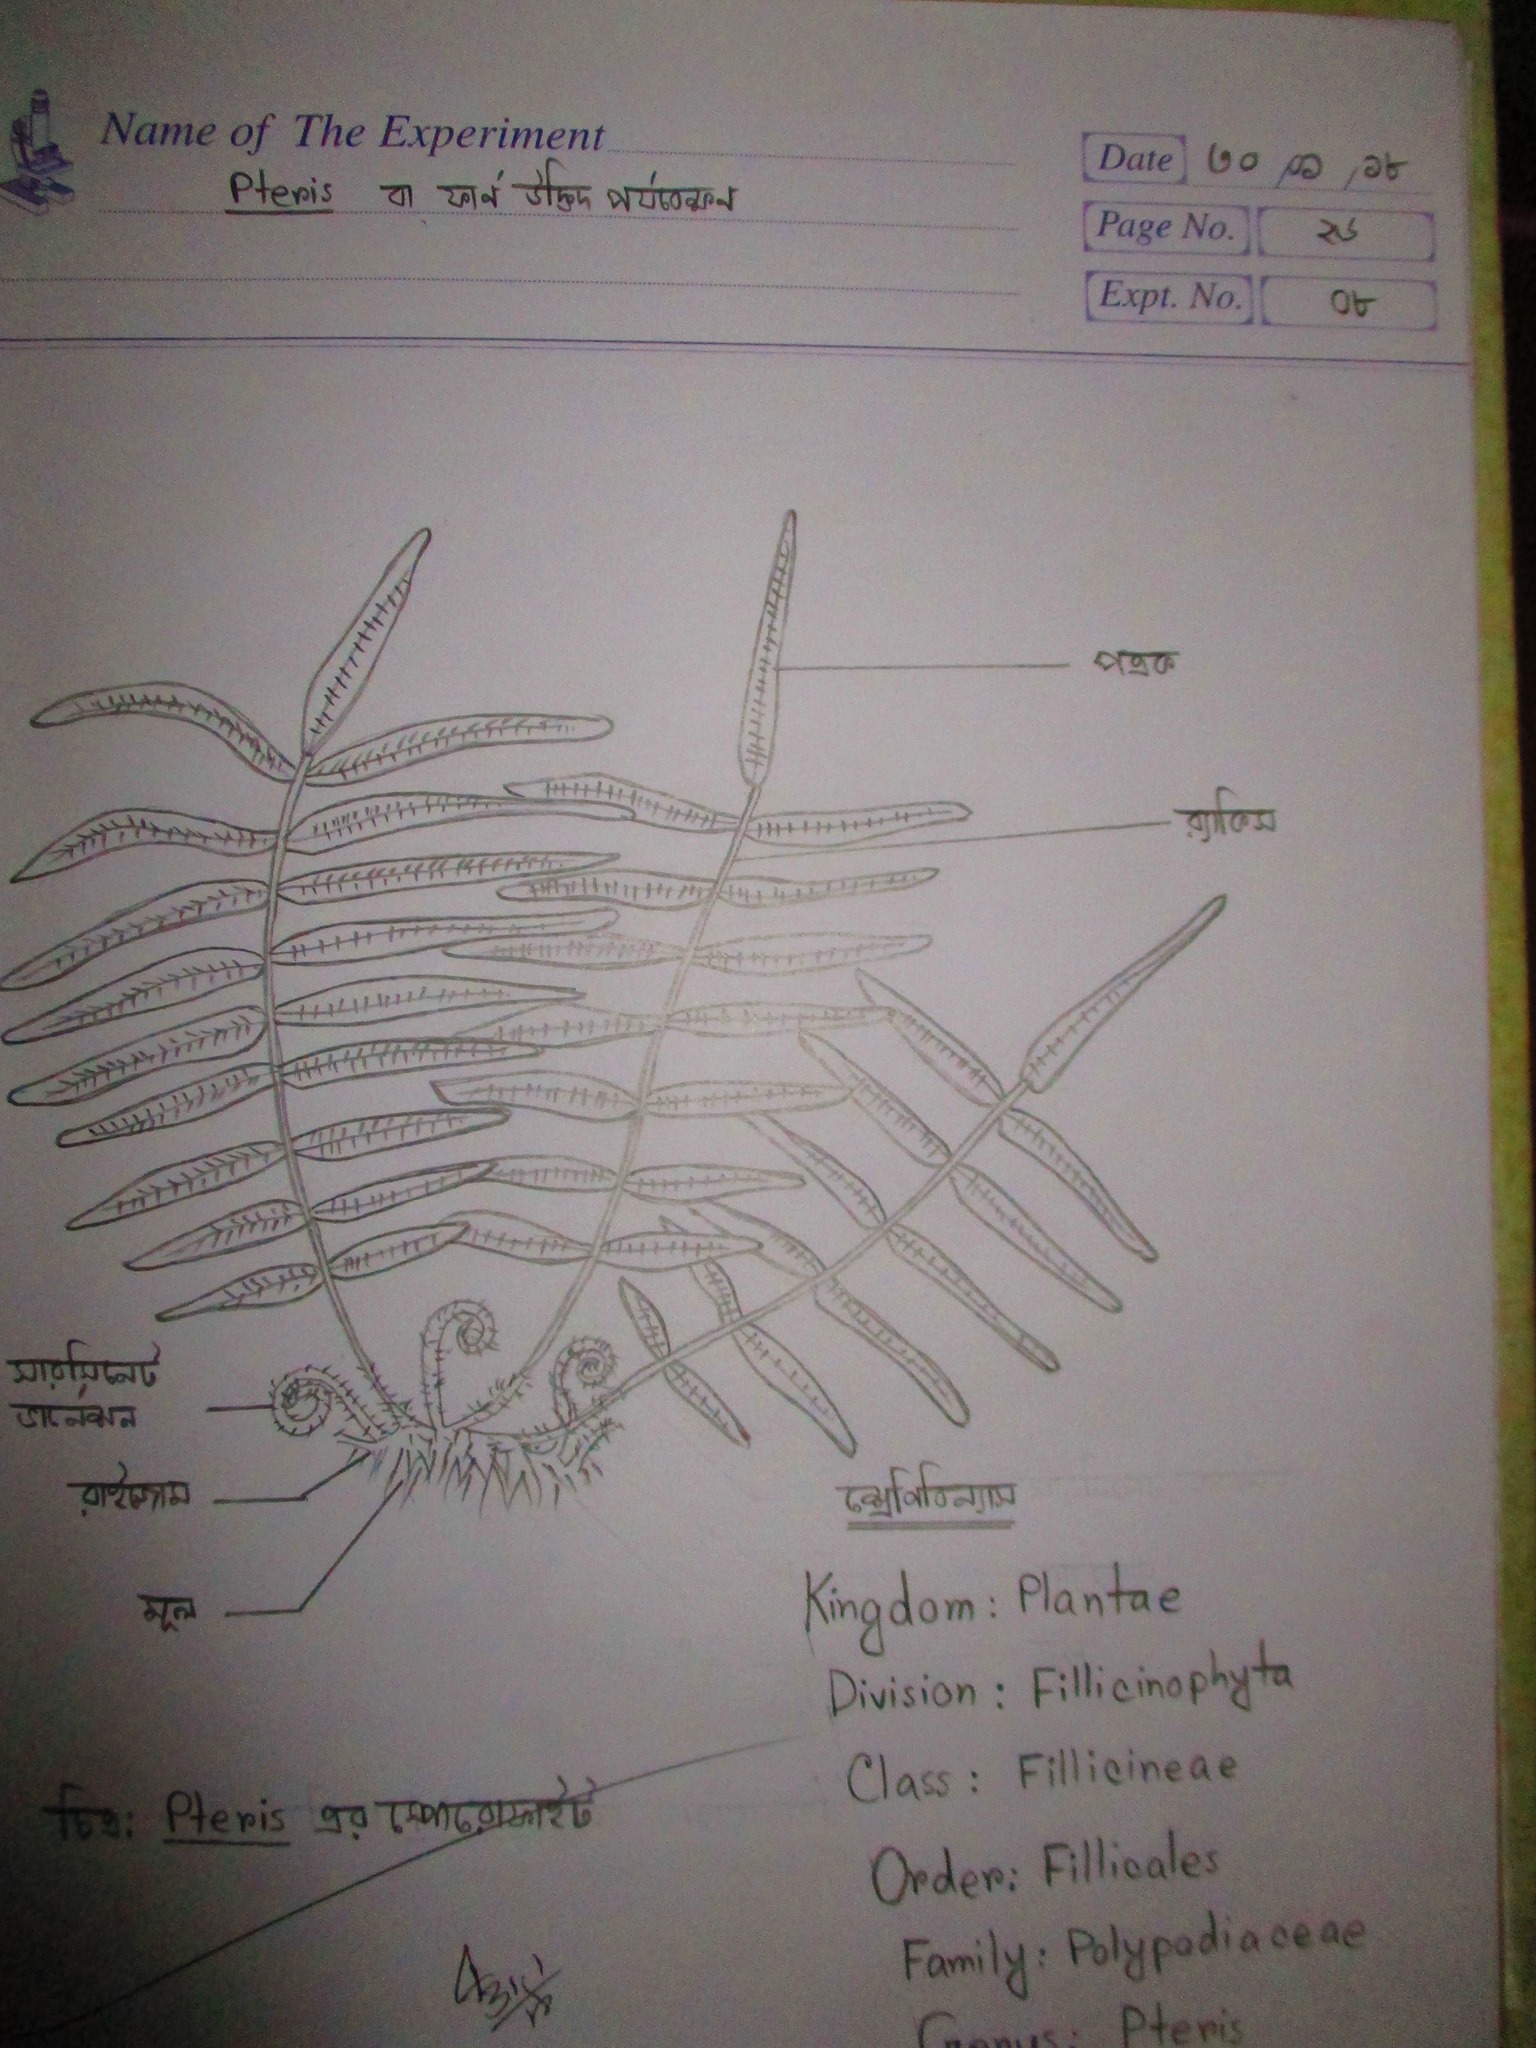 Name of The Experiment
Pteris বা ফার্ন উদ্ভিদ পর্যবেক্ষন
Date ৩০
Page No. ২৬
Expt. No. ০৮
পত্রক
র‍্যাকিস
সারসিনেট
ভার্নেশন
রাইজোম
মূল
শ্রেণিবিন্যাস
Kingdom: Plantae
Division: Fillicinophyta
Class: Fillicineae
Order: Fillicales
Family: Polypodiaceae
Genus: Pteris
চিত্র: Pteris এর স্পোরোফাইট